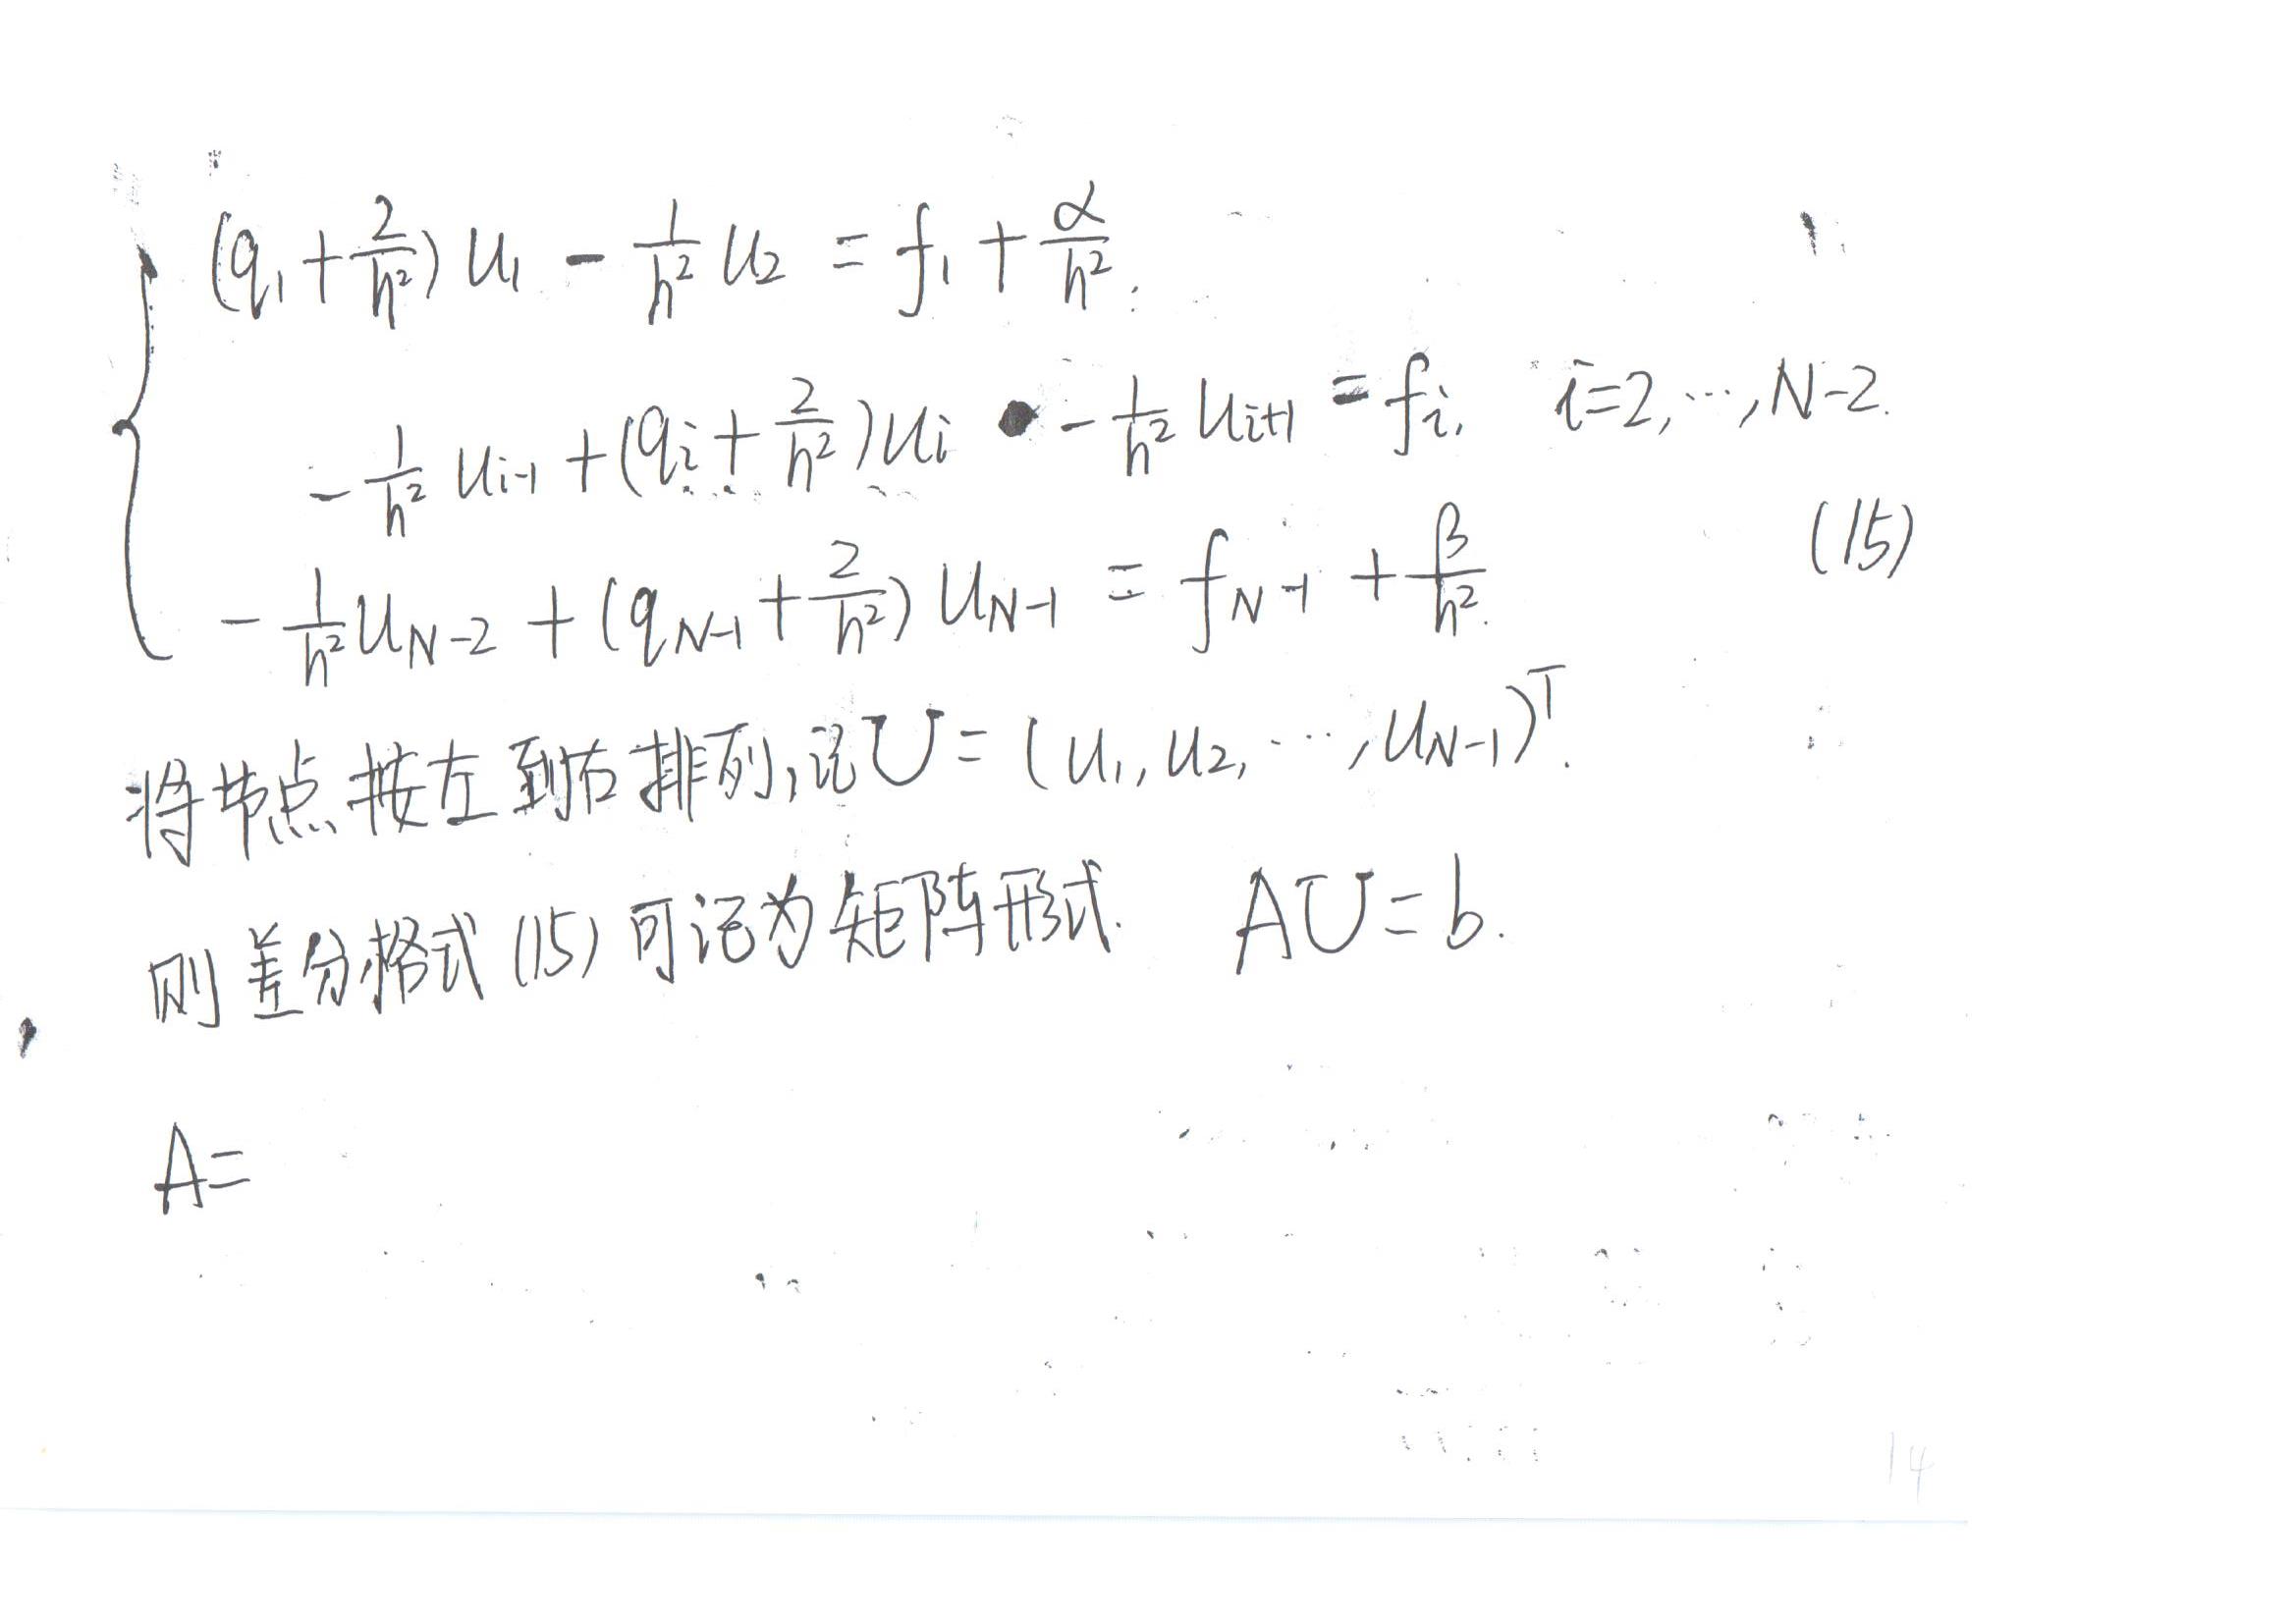 (q₁+2/h²)u₁ - 1/h² u₂ = f₁ + α/h².
-1/h² uᵢ₋₁ + (qᵢ + 2/h²)uᵢ - 1/h² uᵢ₊₁ = fᵢ, i=2,…,N-2.
(15)
-1/h² u_{N-2} + (q_{N-1} + 2/h²) u_{N-1} = f_{N-1} + β/h².
将节点按左到右排列,记U=(u₁,u₂,…,u_{N-1})ᵀ.
则差分格式(15)可记为矩阵形式. AU=b.
A=
14